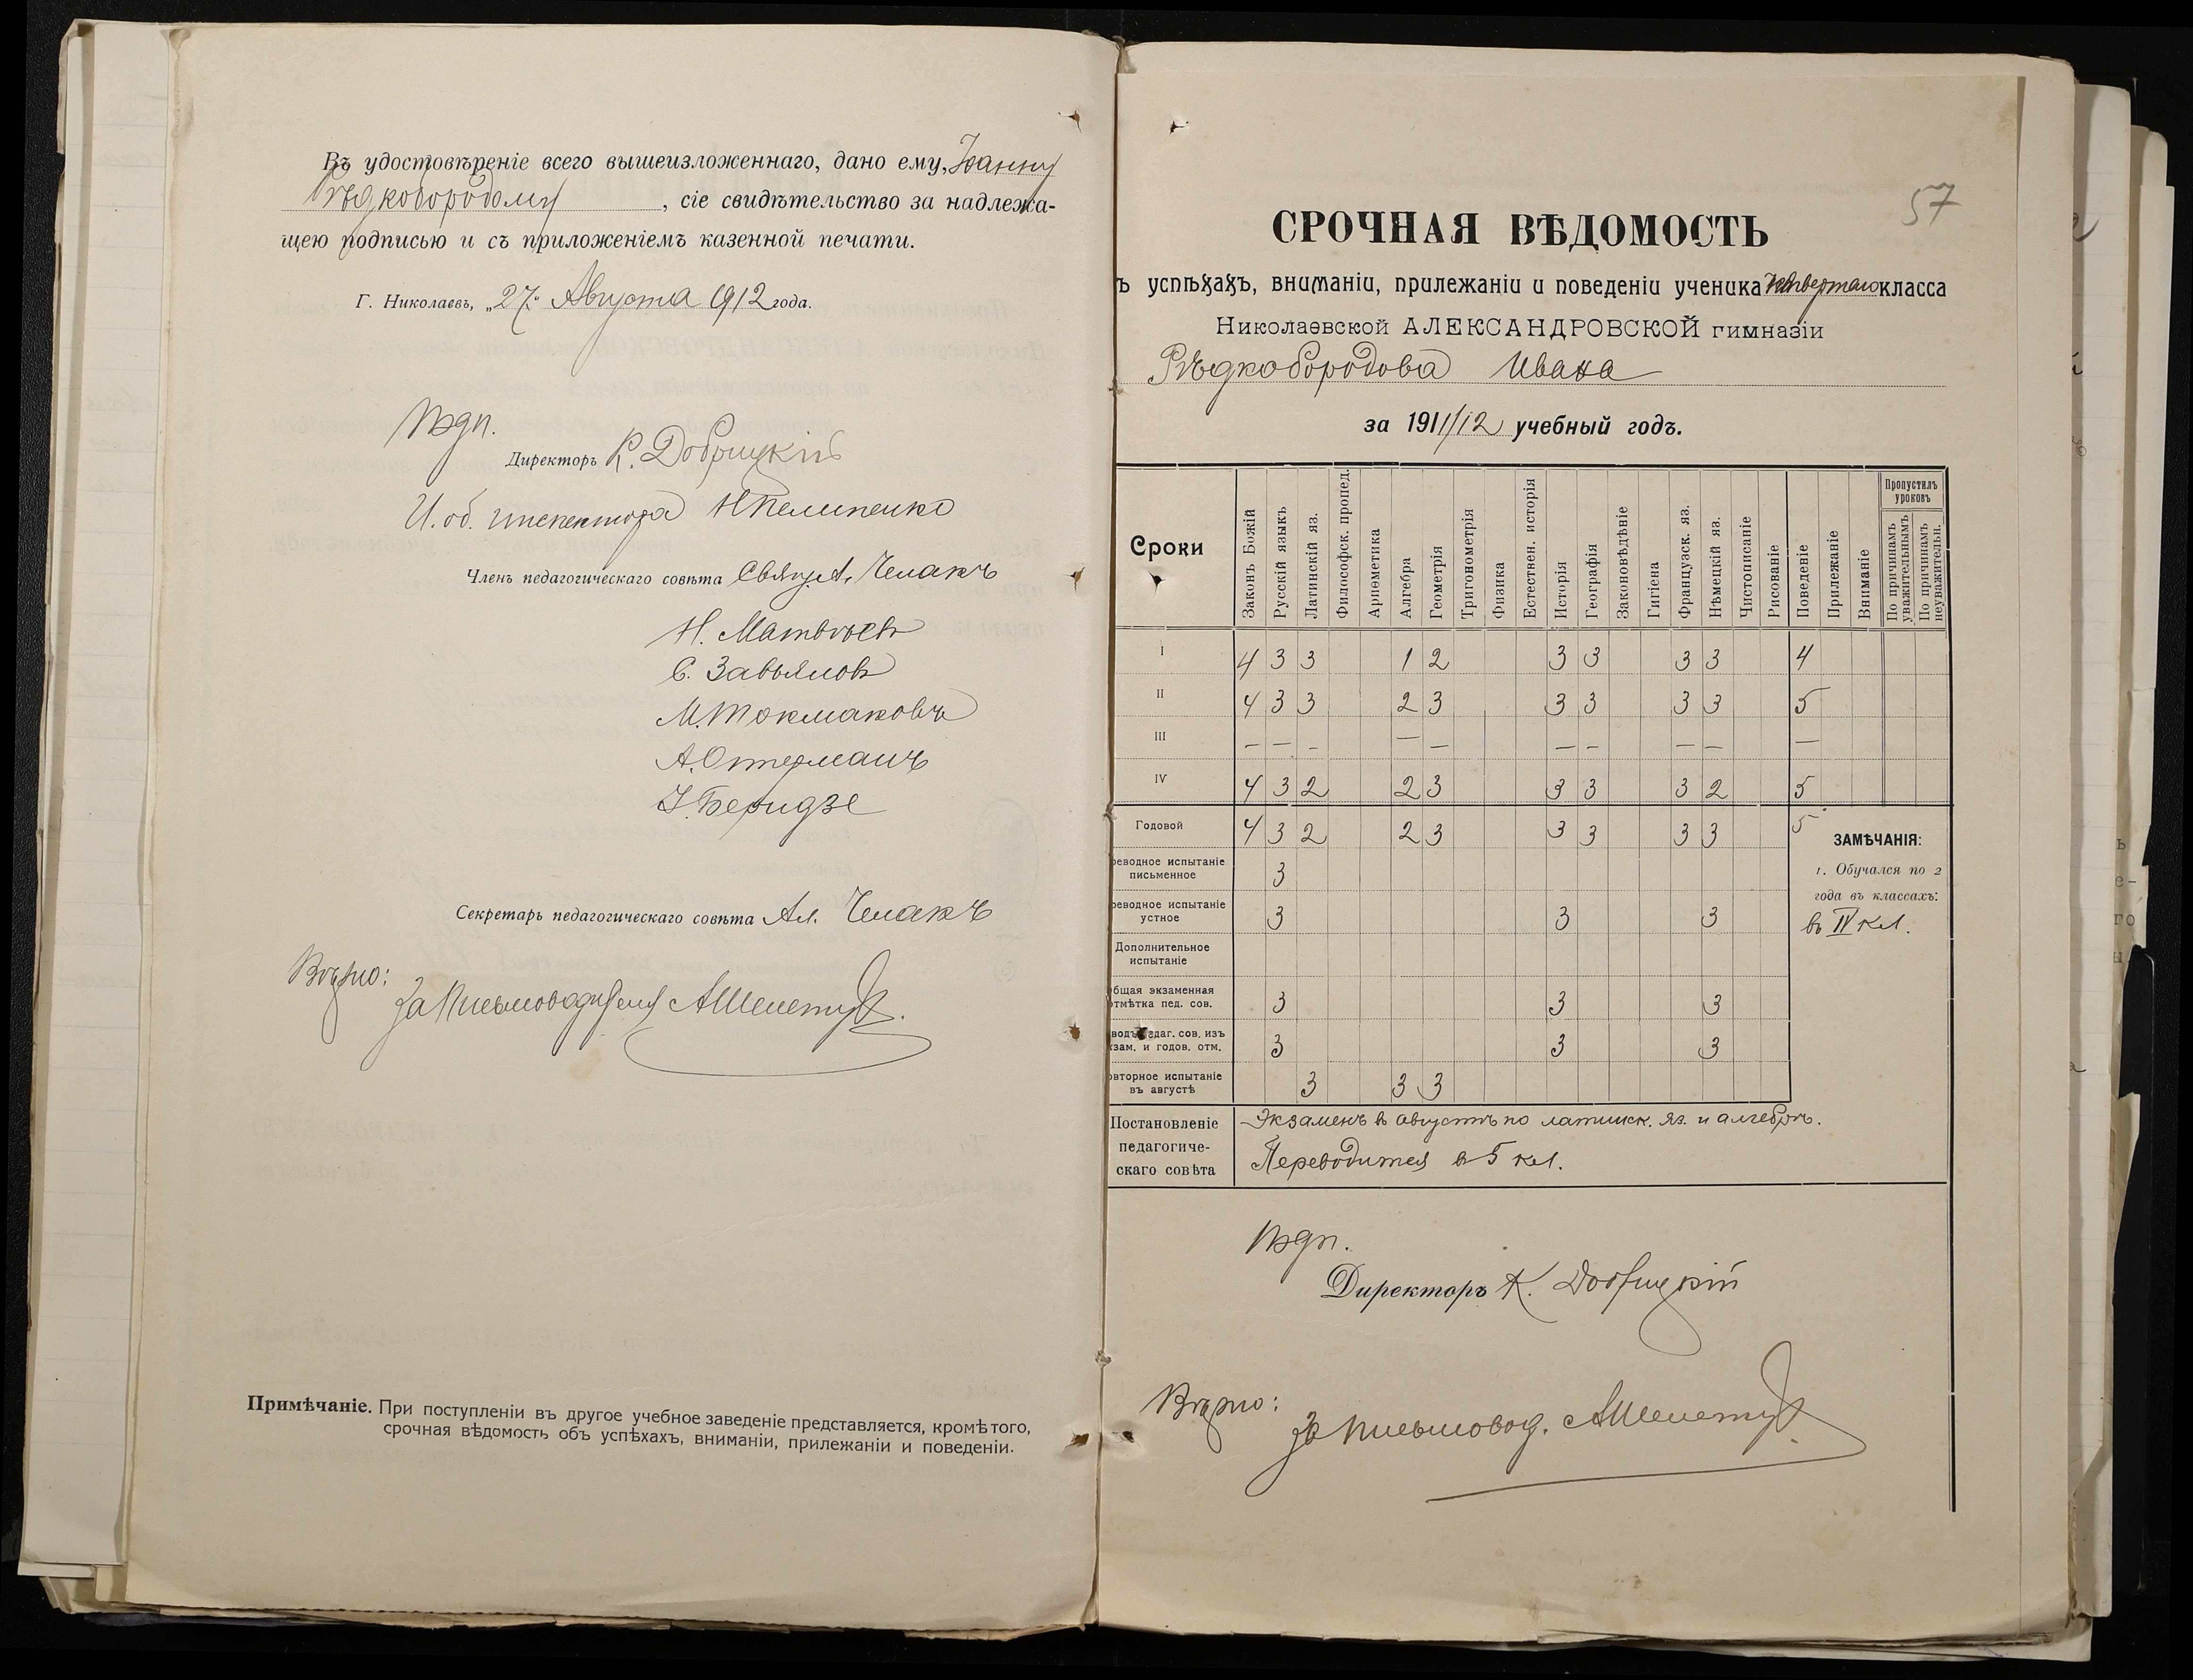 Въ удостовѣреніе всего вышеизложеннаго, дано ему, Іоанну
Рѣдкобородому, сіе свидѣтельство за надлежа-
щею подписью и съ приложеніемъ казенной печати.
Г. Николаевъ, „27“ Августа 1912 года.
Подп.
Директоръ К. Добрицкій
И. об. инспектора Н Пелипенко
Членъ педагогическаго совѣта Свящ. А. Чемакъ
Н. Матвѣевъ
С. Завьяловъ
М. Токмаковъ
А. Остерманъ
І. Беридзе
Секретарь педагогическаго совѣта Ал. Чемакъ
Вѣрно:
За Письмоводителя
Примѣчаніе. При поступленіи въ другое учебное заведеніе представляется, кромѣ того,
срочная вѣдомость объ успѣхахъ, вниманіи, прилежаніи и поведеніи.
57
СРОЧНАЯ ВѢДОМОСТЬ
ъ успѣхахъ, вниманіи, прилежаніи и поведеніи ученика четвертаго класса
Николаевской АЛЕКСАНДРОВСКОЙ гимназіи
Рѣдкобородова Ивана
за 1911/12 учебный годъ.
Сроки Законъ Божій Русскій языкъ Латинскій яз. Философск. пропед. Ариѳметика Алгебра Геометрія Тригонометрія Физика Естествен. исторія Исторія Географія Законовѣдѣніе Гигіена Французск. яз. Нѣмецкій яз. Чистописаніе Рисованіе Поведеніе Прилежаніе Вниманіе
Пропустилъ уроковъ
По причинамъ уважительнымъ
По причинамъ неуважительн.
I 4 3 3 1 2 3 3 3 3 4
II 4 3 3 2 3 3 3 3 3 5
III — — — — — — — — — —
IV 4 3 2 2 3 3 3 3 2 5
Годовой 4 3 2 2 3 3 3 3 3 5
реводное испытаніе
письменное 3
реводное испытаніе
устное 3 3 3
Дополнительное
испытаніе
бщая экзаменная
тмѣтка пед. сов. 3 3 3
водъ педаг. сов. изъ
кзам. и годов. отм. 3 3 3
овторное испытаніе
въ августѣ 3 3 3
ЗАМѢЧАНІЯ:
1. Обучался по 2
года въ классахъ:
въ IV кл.
Постановленіе
педагогиче-
скаго совѣта
Экзаменъ въ августѣ по латинск. яз. и алгебрѣ.
Переводится в 5 кл.
Подп.
Директоръ К. Добрицкій
Вѣрно:
За письмовод.